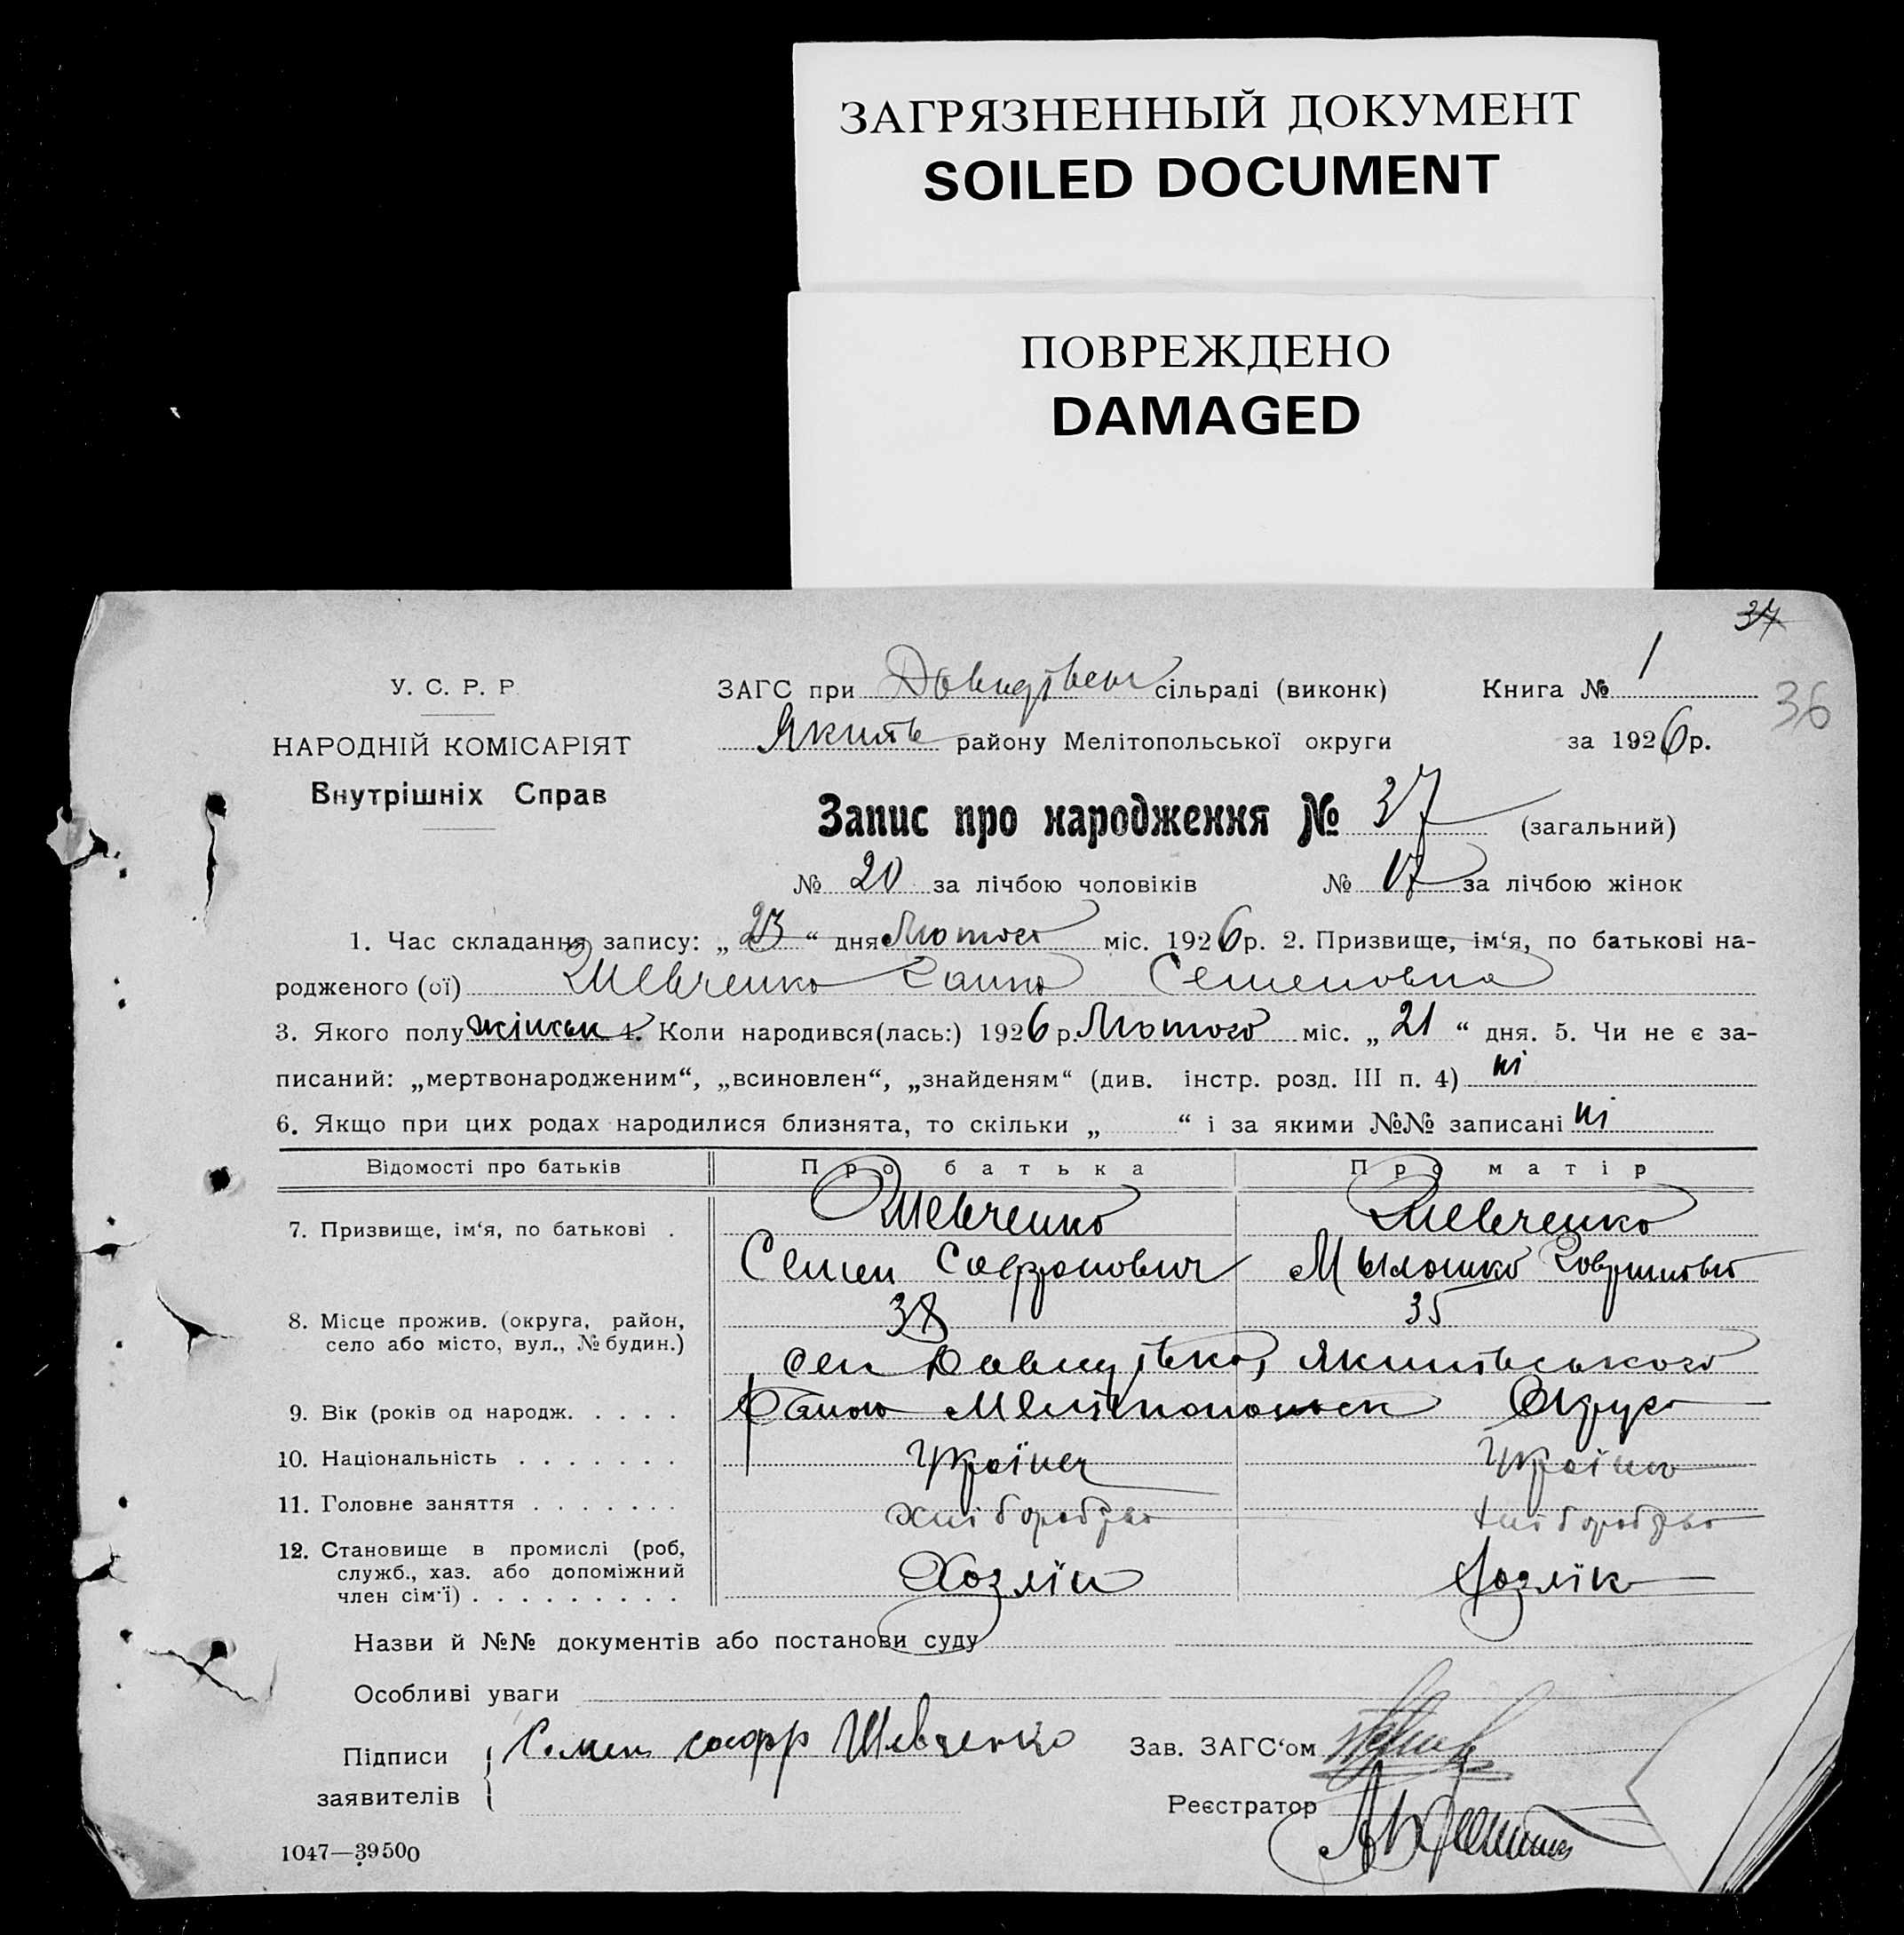 ЗАГРЯЗНЕННЫЙ ДОКУМЕНТ
SOILED DOCUMENT
ПОВРЕЖДЕНО
DAMAGED
37
36
У. С. Р. Р
НАРОДНІЙ КОМІСАРІЯТ
Внутрішніх Справ
ЗАГС при сільраді (виконк) Книга № 1
району Мелітопольської округи за 1926 р.
Запис про народження № 37 (загальний)
№ 20 за лічбою чоловіків № 17 за лічбою жінок
1. Час складання запису: „ 23 “ дня Лютого міс. 1926 р. 2. Призвище, ім‘я, по батькові на-
родженого (ої) Шевченко Ганна Семеновна
3. Якого полу жіноч 4. Коли народився(лась:) 1926 р. Лютого міс. „ 21 “ дня. 5. Чи не є за-
писаний: „мертвонародженим“, „всиновлен“, „знайденям“ (див. інстр. розд. III п. 4) ні
6. Якщо при цих родах народилися близнята, то скільки „ “ і за якими №№ записані ні
Відомості про батьків Про батька Про матір
7. Призвище, ім‘я, по батькові . Шевченко Шевченко
Семен Софронович
38 35
8. Місце прожив. (округа, район,
село або місто, вул., № будин.)
сел Давидівка, Якимівського
9. Вік (років од народж. . . . . Району Мелітопольск Округа
10. Національність . . . . . . . Українец Українка
11. Головне заняття . . . . . . . хліборобство хліборобство
12. Становище в промислі (роб,
служб., хаз. або допоміжний
член сім‘ї) . . . . . . . . . Хозяїн
Назви й №№ документів або постанови суду
Особливі уваги
Підписи Семен Шевченко Зав. ЗАГС‘ом
заявителів Реєстратор
1047—39500